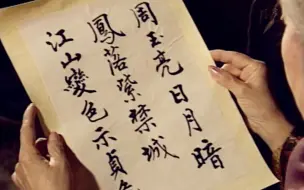 周玉亮日月暗
鳳落紫禁城
江山變色示貞